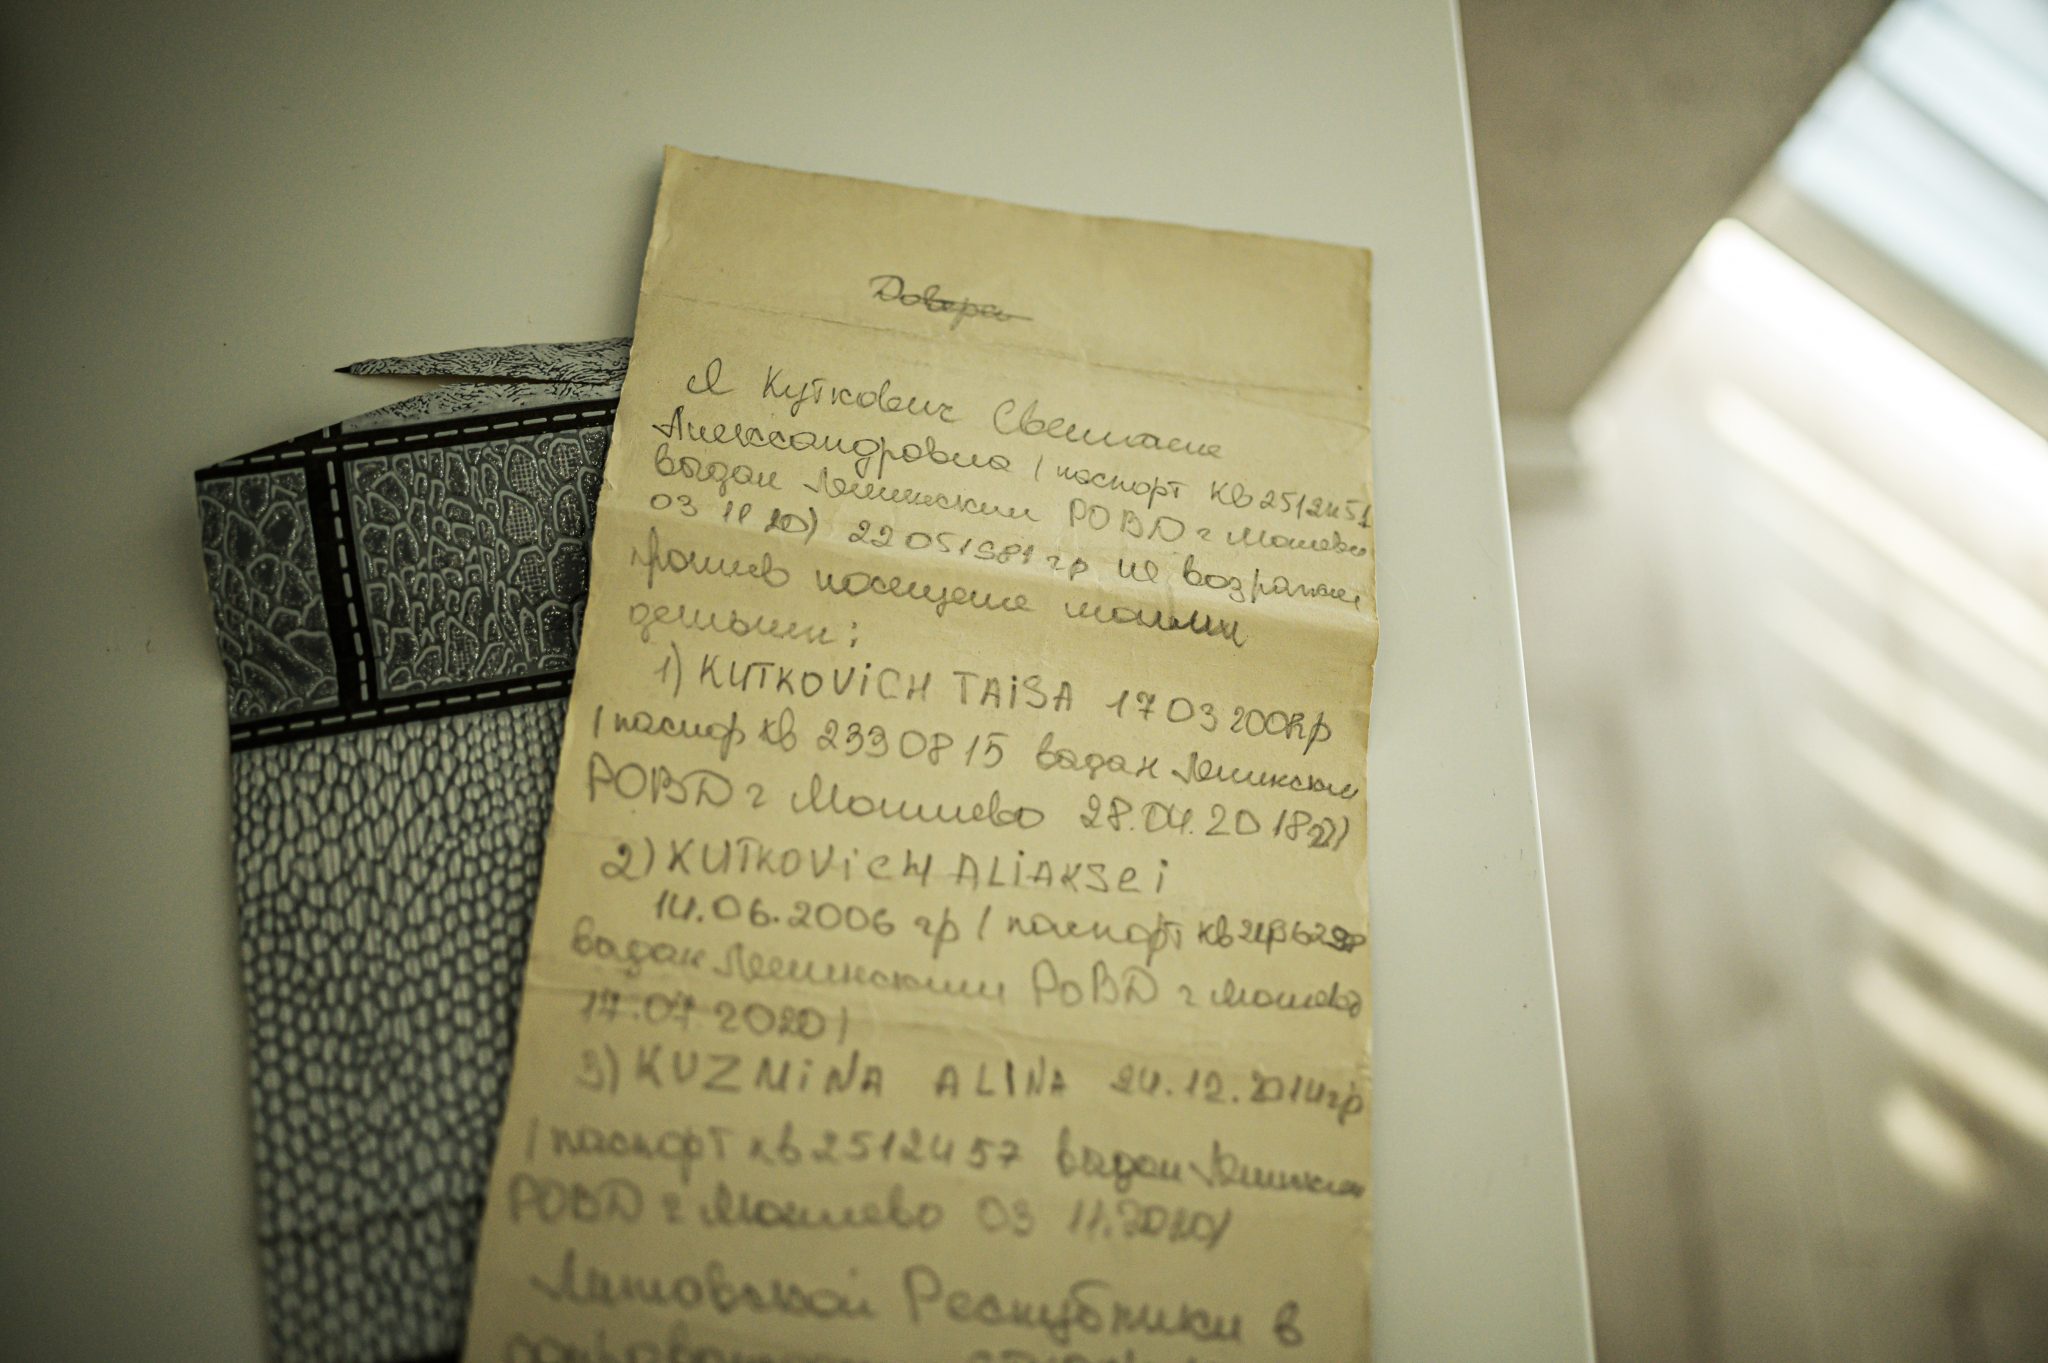 Довере
Я Куткович Светлана
Александровна (паспорт КВ2512451
выдан Ленинским РОВД г Могилева
03 11 20) 22 05 1981 гр не возражаю
против посещение моими
детьми:
1) KUTKOViCH TAiSA 17 03 гр
(паспор КВ 2330815 выдан Ленинским
РОВД г Могилево 28.04.2018г))
2) KUTKOViCH ALiAKSei
14.06.2006 гр (паспорт КВ
выдан Ленинским РОВД г Могилево
17.07 2020)
3) KUZMiNA ALiNA 24.12.2014гр
(паспорт КВ2512457 выдан Ленинским
РОВД г Могилево 03 11.2020)
Литовской Республики в